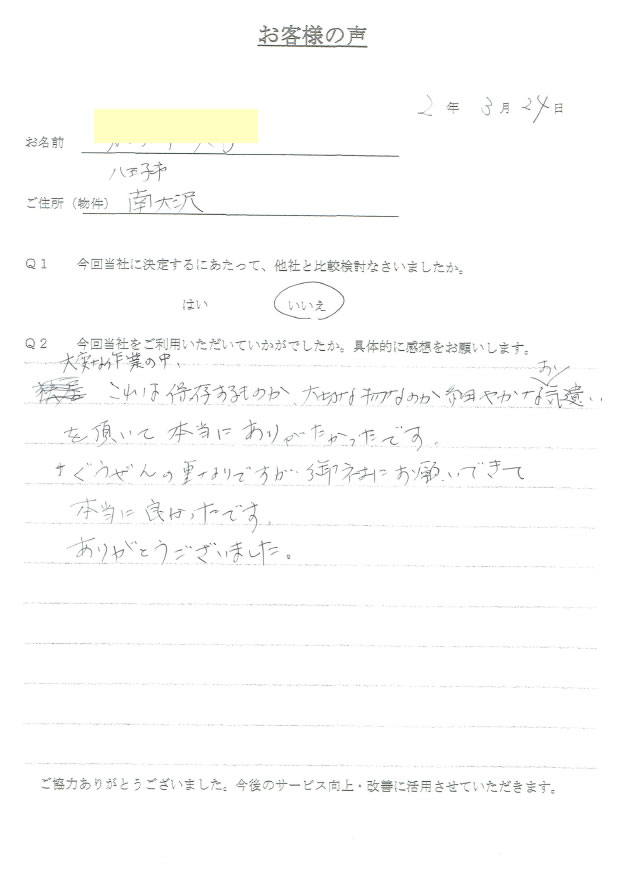 お客様の声
2年 3月 24日
お名前
八王子市
ご住所（物件） 南大沢
Q1 今回当社に決定するにあたって、他社と比較検討なさいましたか。
はい いいえ
Q2 今回当社をご利用いただいていかがでしたか。具体的に感想をお願いします。
大変な作業の中、
これは保存するものか、大切な物なのか細やかなお気遣い
を頂いて本当にありがたかったです。
ぐうぜんの重なりですが、御社にお願いできて
本当に良かったです。
ありがとうございました。
ご協力ありがとうございました。今後のサービス向上・改善に活用させていただきます。